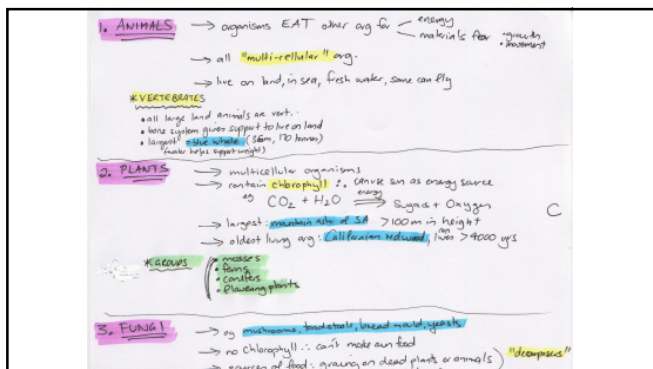 1. ANIMALS → organisms EAT other org for energy
materials for • growth
• movement
→ all "multi-cellular" org.
→ live on land, in sea, fresh water, some can fly
* VERTEBRATES
• all large land animals are vert..
• bone system gives support to live on land
• largest = blue whale (36m, 170 tonnes)
(water helps support weight)
2. PLANTS → multicellular organisms
→ contain chlorophyll ∴ can use sun as energy source
eg CO2 + H2O energy ⟹ Sugars + Oxygen
C
→ largest: mantain ash of SA >100m in height
→ oldest living org: Californian redwood, lives >4000 yrs
* GROUPS • mosses
• ferns
• conifers
• flowering plants
3. FUNGI → eg mushrooms, toadstools, bread mould, yeasts
→ no chlorophyll ∴ can't make own food
→ sources of food: growing on dead plants or animals) "decomposers"